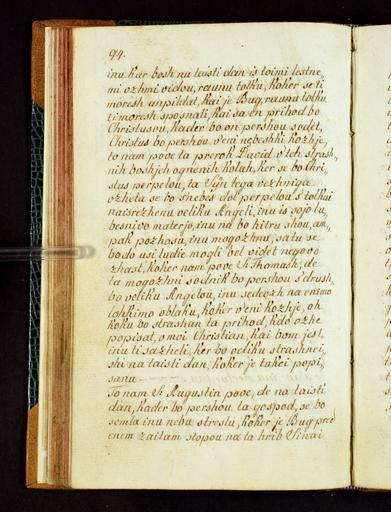 94.
inu kar bosh na taisti dan is toimi lestne,
mi ozhmi vidou, raunu tolku, koker se ti
moresh anpildat, kai je Bug, raunu tolku
ti moresh sposnati, kai sa en prihod bo
Christusou, kader bo on pershou sodet,
Christus bo pershou v'eni nebeshki kozhje,
to nam pove ta prerok David v'teh strash,
nih boshjeh ognenih kolah, ker se bo Chri,
stus perpelou, ta Syn tega vezhniga
ozheta se bo s'nebes dol perpelou s'tolkai
naisrezhenu veliku Angeli, inu is sojo lu,
besnivo materjo, inu na bo hitru shou, am,
pak pozhosu, inu mogozhnu, satu se
bodo usi ludie mogli bel videt negovo
zhast, koker nam pove S. Thomash, de
ta mogozhni sodnik bo pershou s'drush,
bo veliku Angelou, inu sedeozh na enimo
lohkimo oblaku, koker v'eni kozhje, oh
koku bo strashan ta prihod, kdo ozhe
popisat, o moi Christian, kai bom jest
inu ti sazheli, ker bo veliku strashnei,
shi na taisti dan, koker je takei popi,
sanu
To nam S. Augustin pove, de na taisti
dan, kader bo pershou ta gospod, se bo
semla inu nebu streslu, koker je Bug pred
enem zaitam stopou na ta hrib Sinai